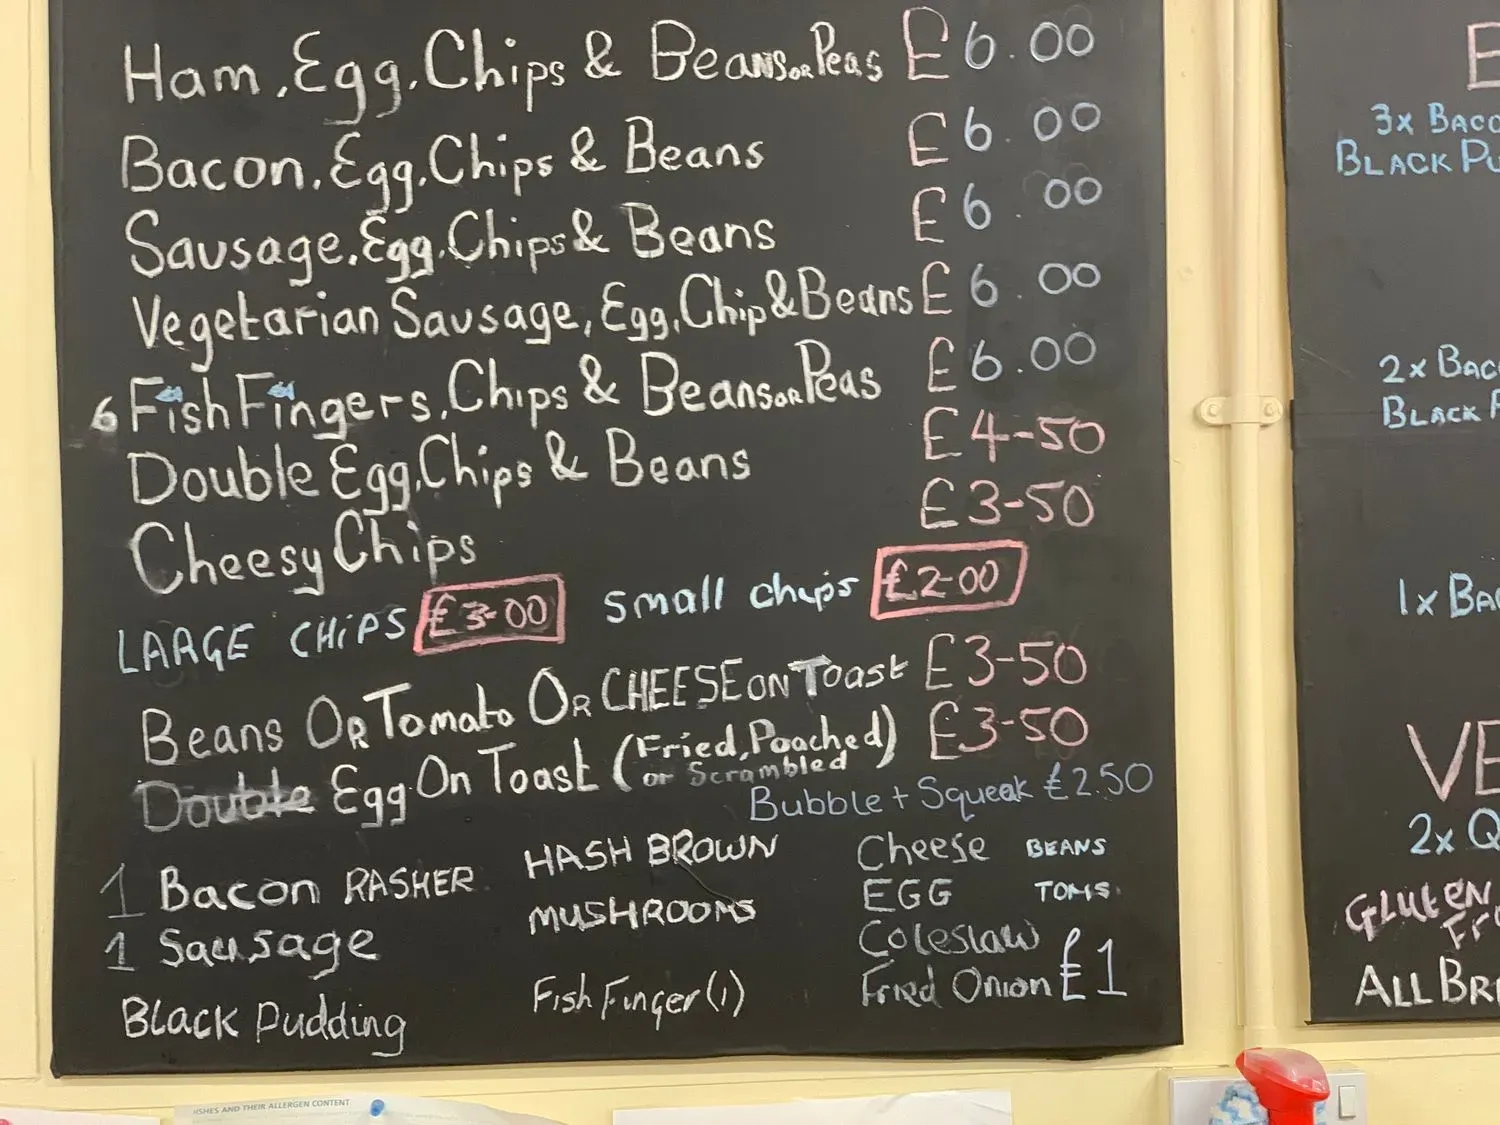 Ham, Egg, Chips & Beans or Peas £6.00
Bacon, Egg, Chips & Beans £6.00
Sausage, Egg, Chips & Beans £6.00
Vegetarian Sausage, Egg, Chip & Beans £6.00
6 Fish Fingers, Chips & Beans or Peas £6.00
Double Egg, Chips & Beans £4-50
Cheesy Chips £3-50
LARGE CHIPS £3-00 small chips £2-00
Beans Or Tomato Or CHEESE ON Toast £3-50
Double Egg On Toast (Fried, Poached or Scrambled) £3-50
Bubble + Squeak £2.50
1 Bacon RASHER
1 Sausage
Black Pudding
HASH BROWN
MUSHROOMS
Fish Finger (1)
Cheese BEANS
EGG TOMS
Coleslaw
Fried Onion £1
3x
BLACK
2x
BLACK
1x
2x
GLUTEN
ALL
ISHES AND THEIR ALLERGEN CONTENT